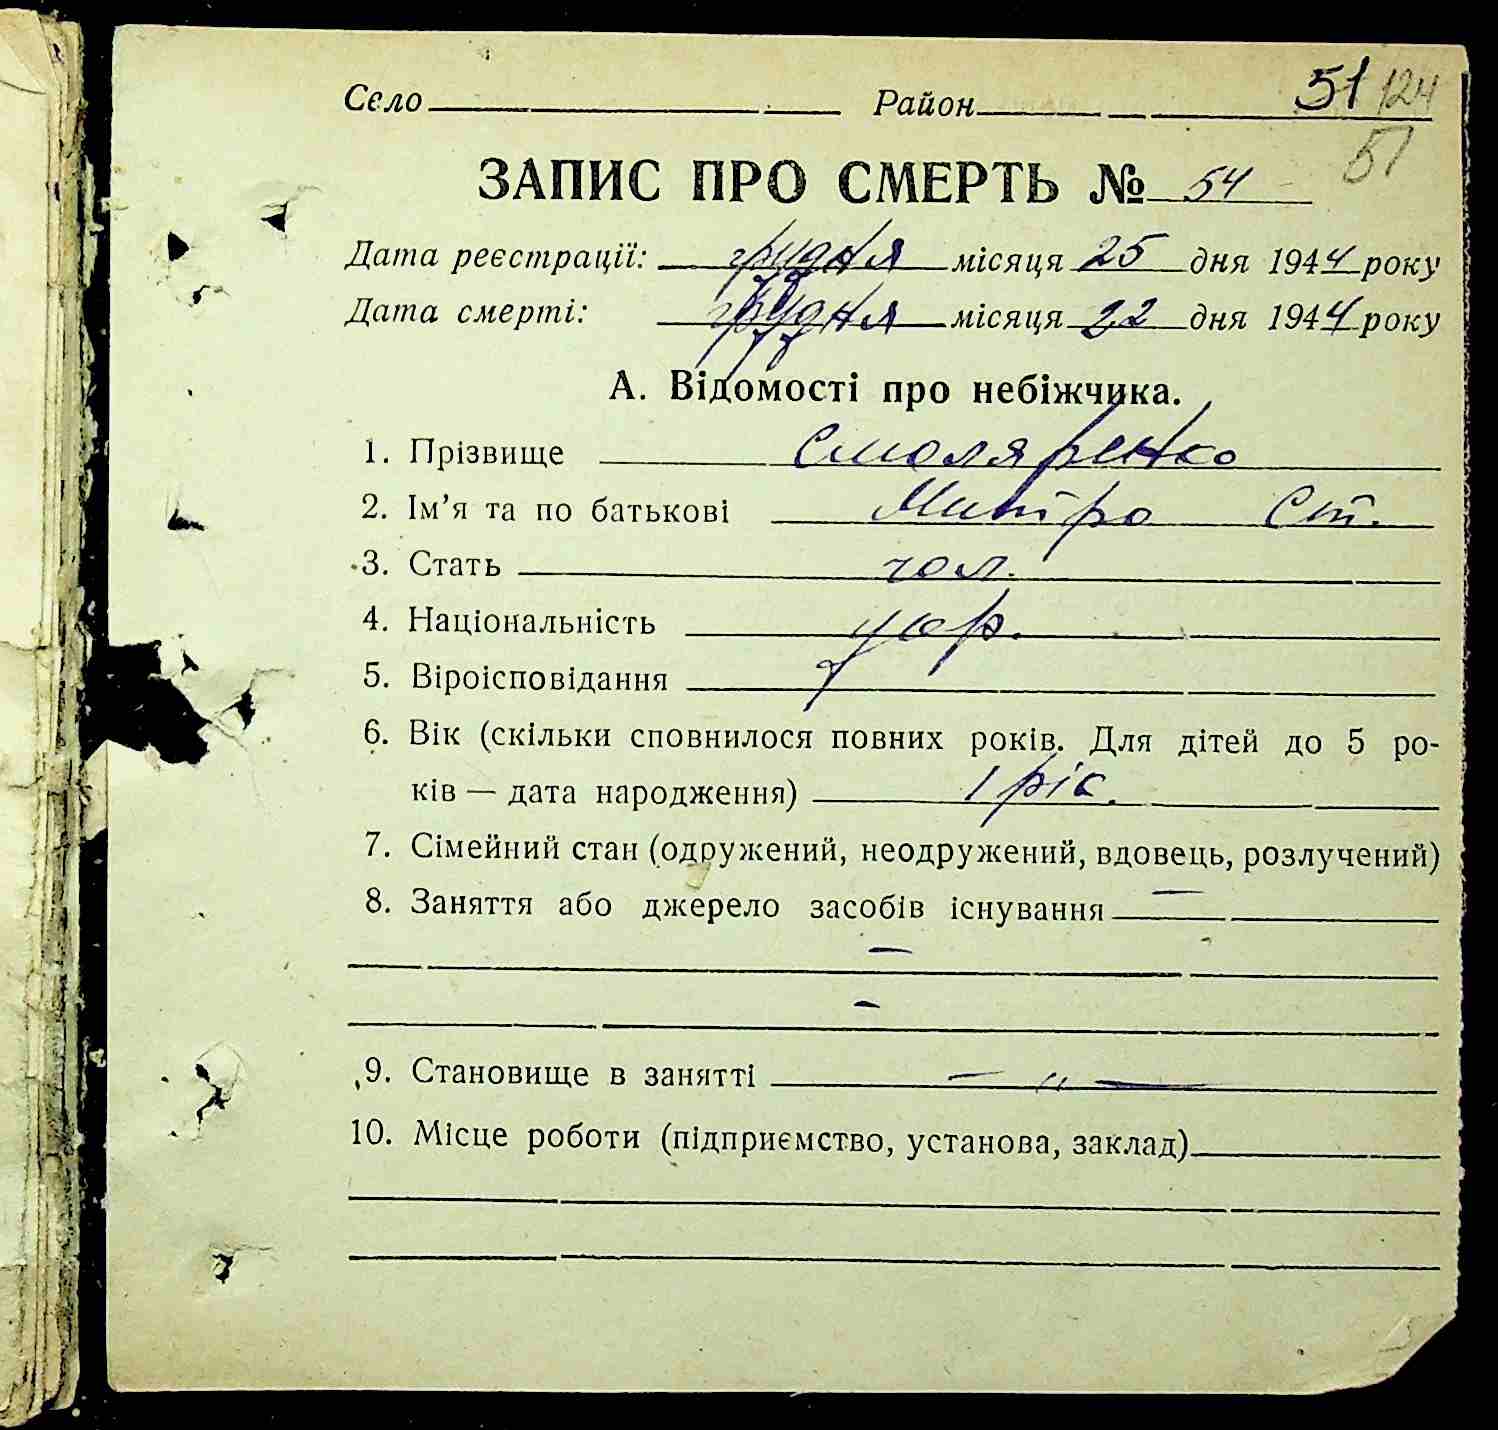 Село Район 51 124
51
ЗАПИС ПРО СМЕРТЬ № 54
Дата реєстрації: грудня місяця 25 дня 1944 року
Дата смерті: грудня місяця 22 дня 1944 року
А. Відомості про небіжчика.
1. Прізвище Смоляренко
2. Ім'я та по батькові Митро Ст.
3. Стать чол.
4. Національність укр.
5. Віроісповідання
6. Вік (скільки сповнилося повних років. Для дітей до 5 ро-
ків — дата народження) 1 рік.
7. Сімейний стан (одружений, неодружений, вдовець, розлучений)
8. Заняття або джерело засобів існування —
—
—
9. Становище в занятті — „ —
10. Місце роботи (підприємство, установа, заклад)